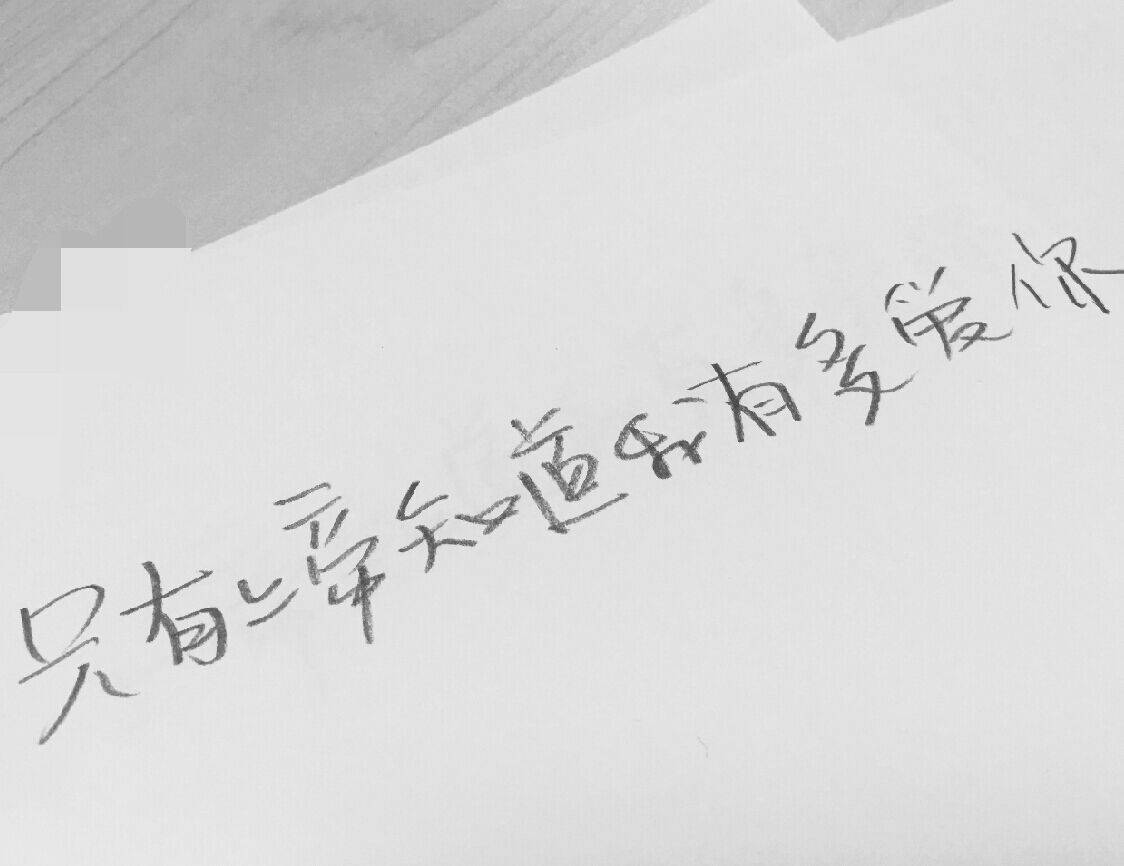 只有上帝知道我有多爱你